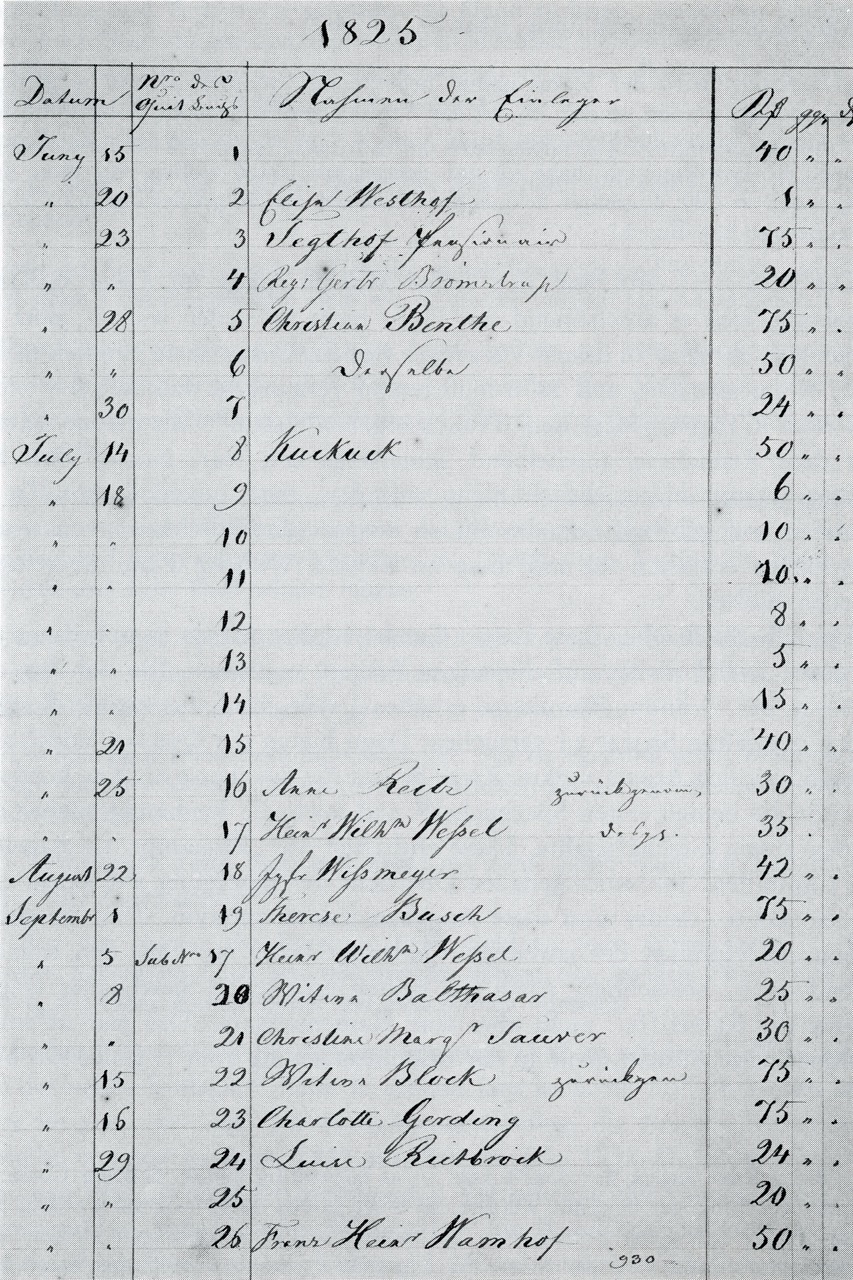 1825
Datum Nro des Quit Buchs Nahmen der Einleger Rthlr ggr
Juny 15 1 40 " "
" 20 2 Elise Westhof 1 " "
" 23 3 Segthof Pensionair 75 " "
" " 4 Gertr 20 " "
" 28 5 Christian Benthe 75 " "
" " 6 Derselbe 50 " "
" 30 7 24 " "
July 14 8 Kuckuck 50 " "
" 18 9 6 " "
" " 10 10 " "
" " 11 10 " "
" " 12 8 " "
" " 13 5 " "
" " 14 15 " "
" 21 15 40 " "
" 25 16 Anna Reitz 30 " "
" " 17 Heinr Wilhm Weßel desgl. 35 "
August 22 18 Jgfr Wißmeyer 42 " "
Septembr 1 19 Therese Busch 75 " "
" 5 Sub Nro 17 Heinr Wilhm Weßel 20 " "
" 8 20 Witwe Balthasar 25 " "
" " 21 Christine Margr Saurer 30 " "
" 15 22 Witwe Block zurückgen 75 " "
" 16 23 Charlotte Gerding 75 " "
" 29 24 Luise Rietbrock 24 " "
" " 25 20 " "
" " 26 Franz Heinr Wamhof 50 " "
930